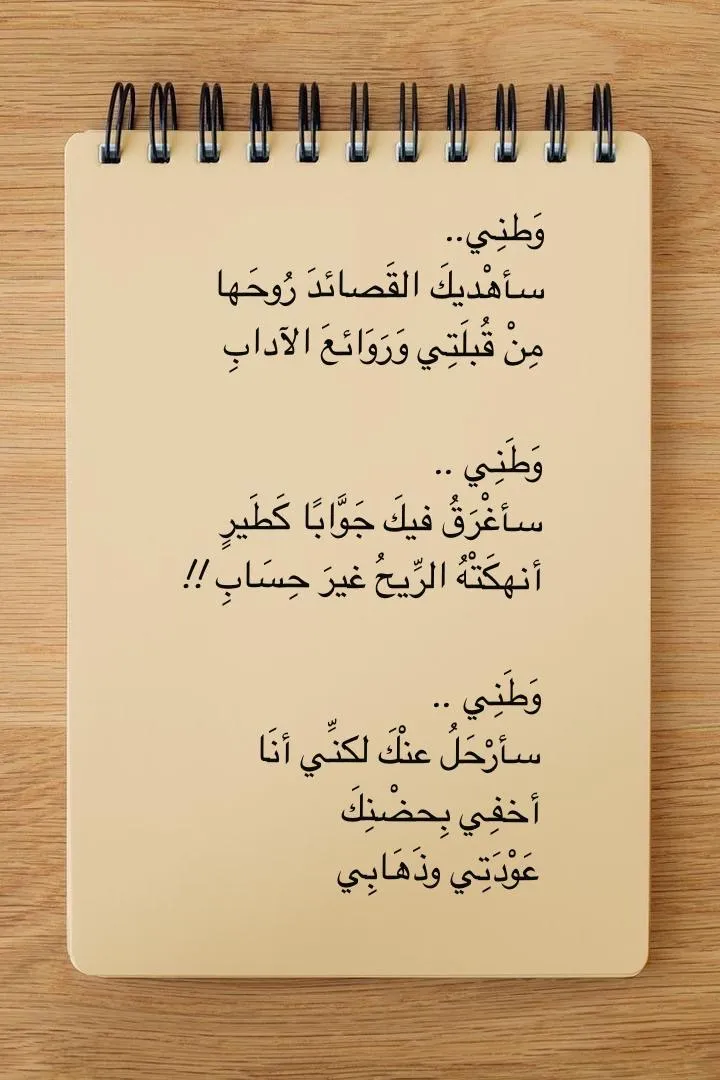 وَطنِـي..
سـأهْديكَ القَصائدَ رُوحَـها
مِنْ قُبلَتِـي وَرَوَائـعَ الآدابِ
وَطَنِـي ..
سـأغْرَقُ فيكَ جَوَّابًا كَطَيرٍ
أنهكَتْهُ الرِّيحُ غيرَ حِسَابِ !!
وَطَنِـي ..
سـأرْحَلُ عنْكَ لكنِّـي أنَا
أخفِـي بِحضْنِكَ
عَوْدَتِـي وذَهَابِـي